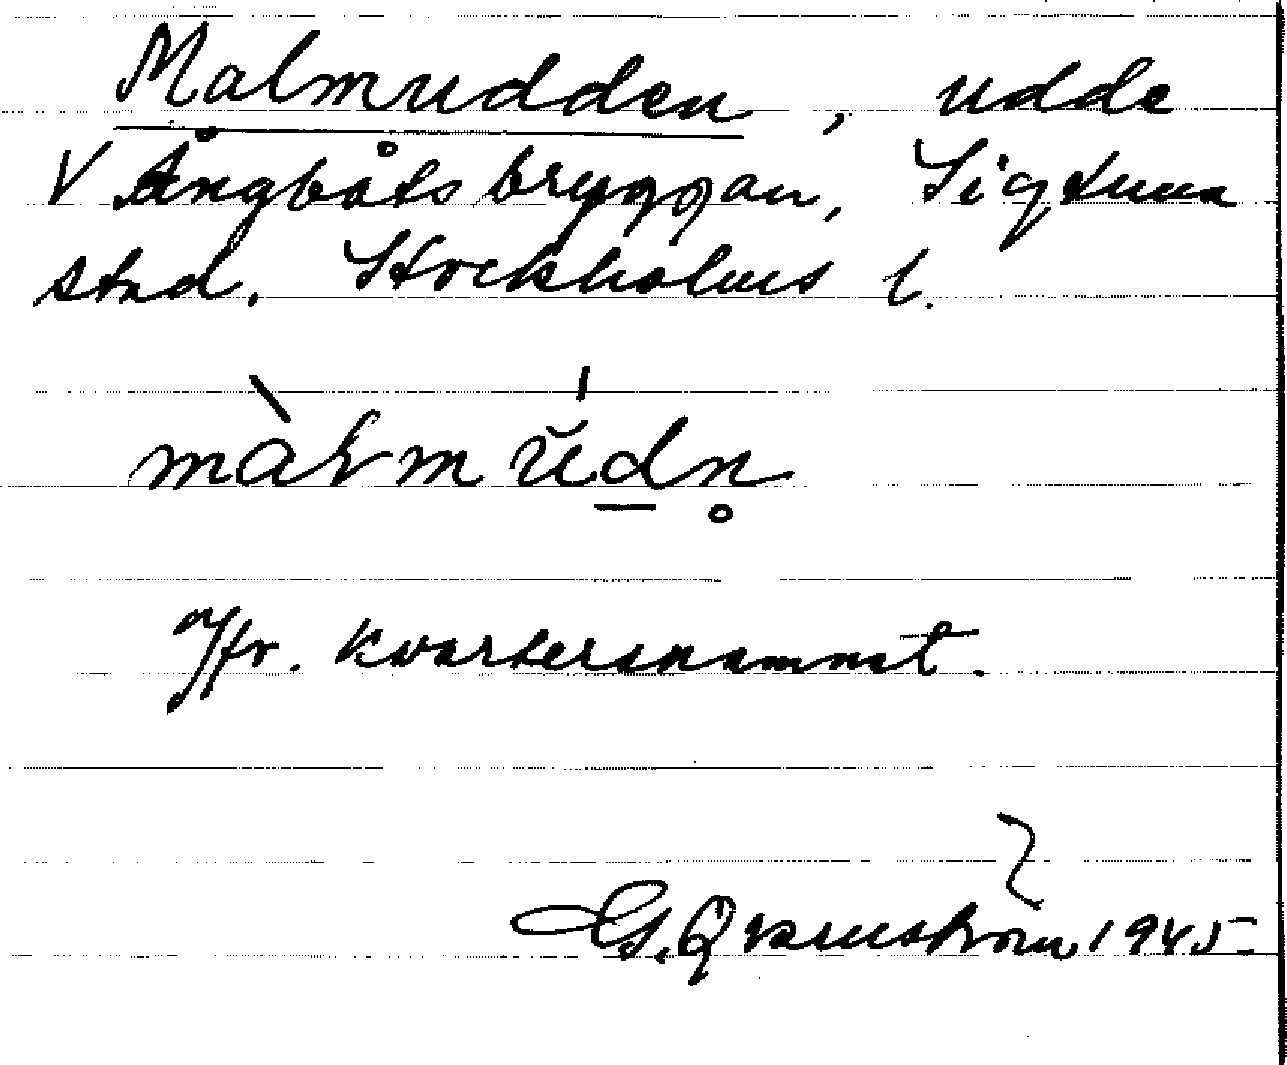 Malmudden, udde
V Ångbåtsbryggan, Sigtuna
stad. Stockholms l.
màlmŭ́dn̥
Jfr. kvartersnamnet.
G. Qvarnström 1945